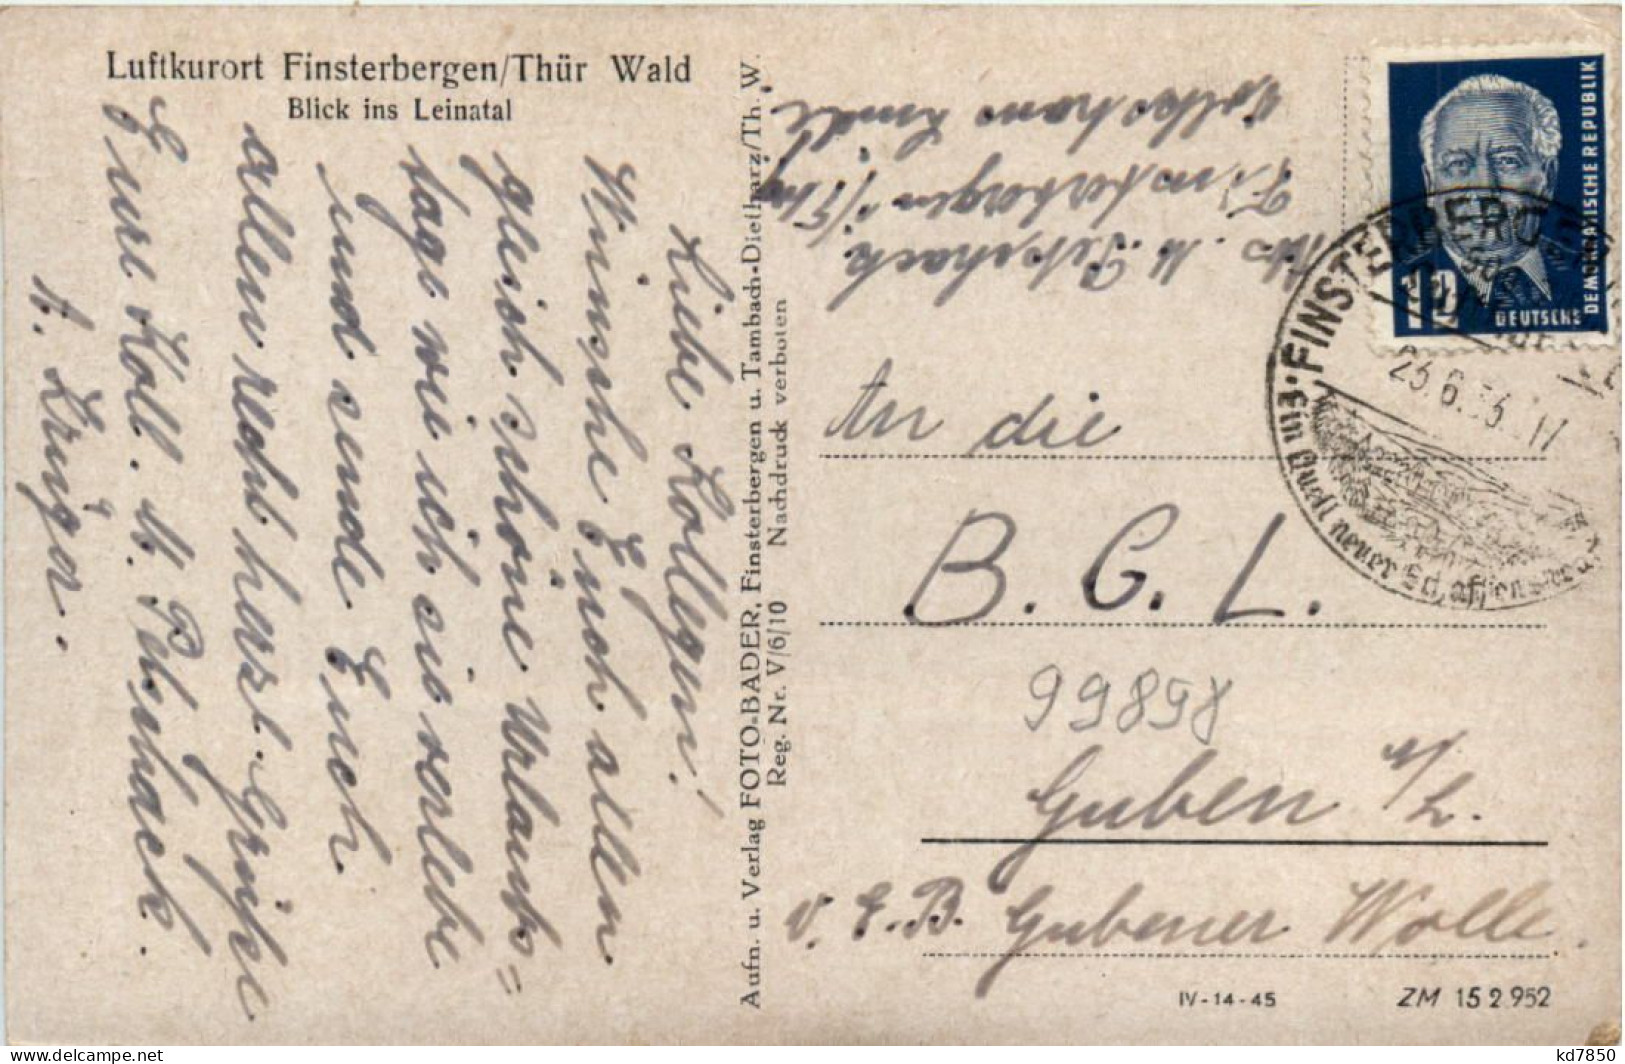 Luftkurort Finsterbergen/Thür Wald
Blick ins Leinatal
Liebe Kollegen!
Wünsche Euch allen
gleich schöne Urlaubs=
tage wie ich sie verlebe
und sende Euch
allen recht herzl. Grüße
Eure Koll. M. Petschack.
A. Krüger.
Aufn. u. Verlag FOTO-BADER, Finsterbergen u. Tambach-Dietharz/Th. W.
Reg. Nr. V/6/10 Nachdruck verboten
Abs. M. Petschack
Finsterbergen /Thür
Volkshaus Linde
DEUTSCHE
DEMOKRATISCHE REPUBLIK
12
FINSTERBERGEN
23.6.53.-17
Ein Quell neuer Schaffenskraft
An die
B. G. L.
99898
Guben N/L.
V. E. B. Gubener Wolle.
IV-14-45
ZM 15 2 952
kd7850